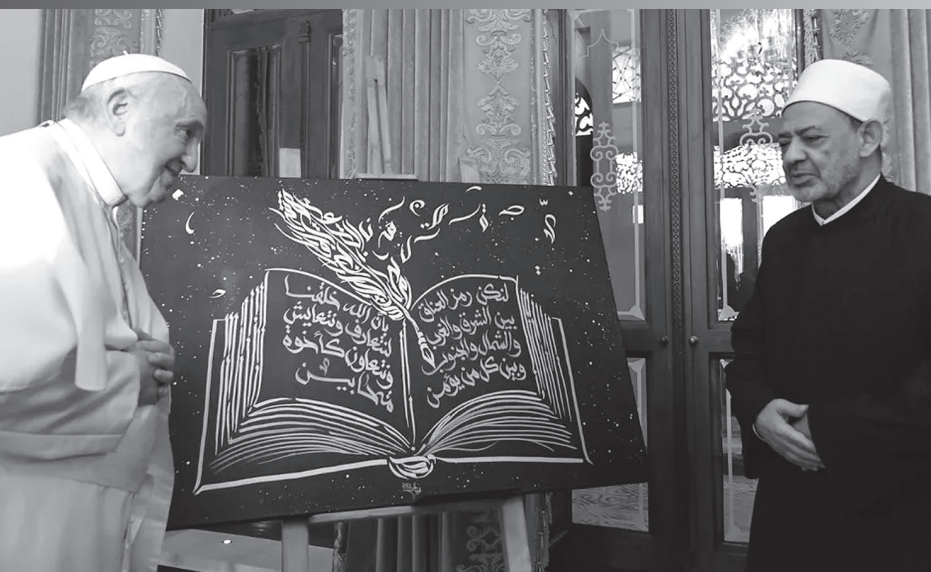 لتكن رمز العناق
بين الشرق والغرب
والشمال والجنوب
وبين كل من يؤمن
بأن الله خلقنا
لنتعارف ونتعايش
ونتعاون كأخوة
متحابين